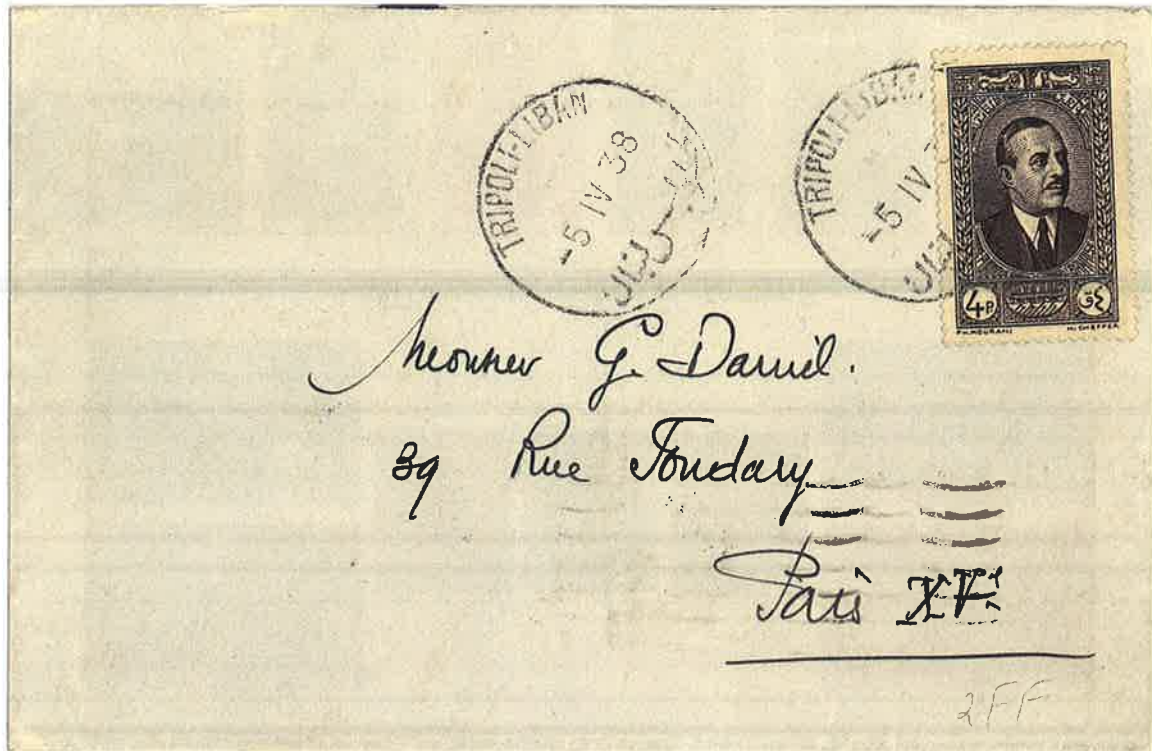 TRIPOLI-LIBAN
-5 IV 38
TRIPOLI-LIBAN
-5 IV 3
4P
٤ق
H. CHEFFER
Monsieur G. Daniel.
39 Rue Fondary
Paris XVe
2FF